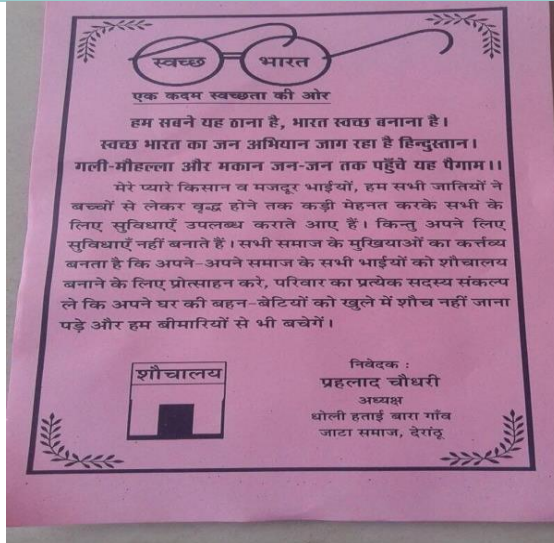 स्वच्छ भारत
एक कदम स्वच्छता की ओर
हम सबने यह ठाना है, भारत स्वच्छ बनाना है।
स्वच्छ भारत का जन अभियान जाग रहा है हिन्दुस्तान।
गली-मौहल्ला और मकान जन-जन तक पहुँचे यह पैगाम।।
मेरे प्यारे किसान व मजदूर भाईयों, हम सभी जातियों ने
बच्चों से लेकर वृद्ध होने तक कड़ी मेहनत करके सभी के
लिए सुविधाएँ उपलब्ध कराते आए हैं। किन्तु अपने लिए
सुविधाएँ नहीं बनाते हैं। सभी समाज के मुखियाओं का कर्त्तव्य
बनता है कि अपने-अपने समाज के सभी भाईयों को शौचालय
बनाने के लिए प्रोत्साहन करे, परिवार का प्रत्येक सदस्य संकल्प
ले कि अपने घर की बहन-बेटियों को खुले में शौच नहीं जाना
पड़े और हम बीमारियों से भी बचेगें।
शौचालय
निवेदक :
प्रहलाद चौधरी
अध्यक्ष
धोली हताई बारा गाँव
जाटा समाज, देरांठू